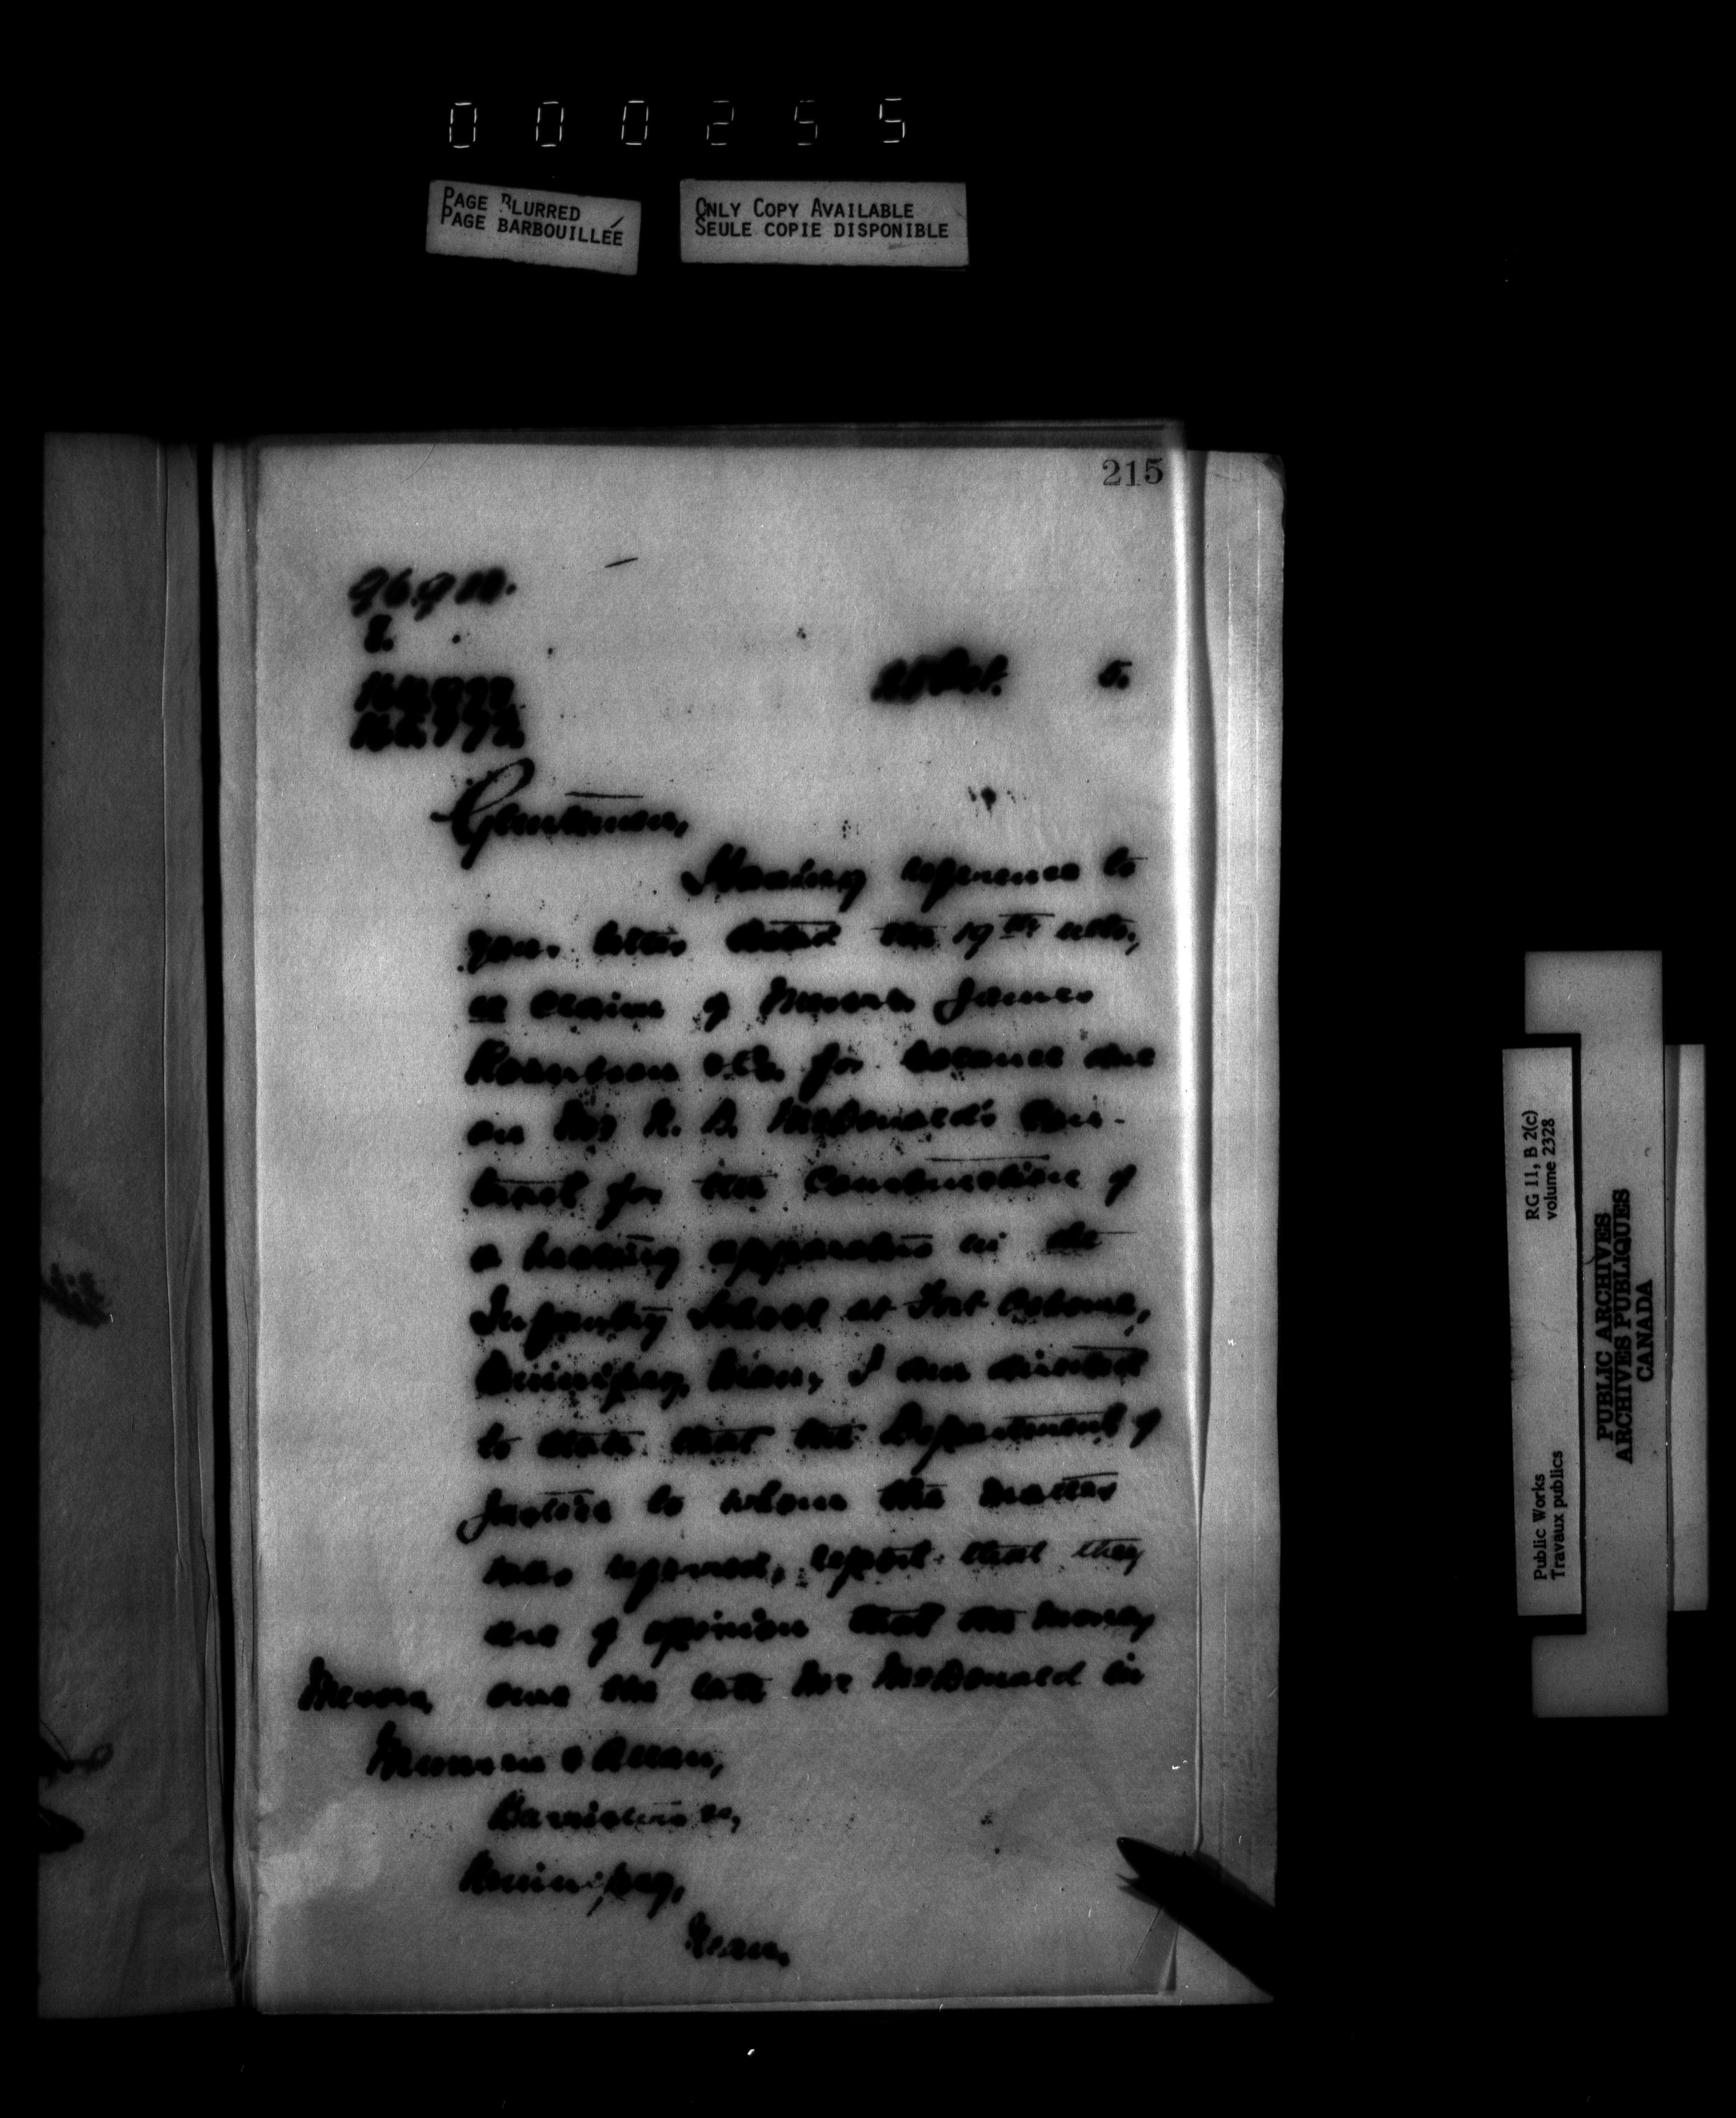 000255
PAGE BLURRED
PAGE BARBOUILLÉE
ONLY COPY AVAILABLE
SEULE COPIE DISPONIBLE
215
Oct. 5.
Gentlemen,
Having reference to
your letter dated the 19th ulto.,
re claim of Messrs. James
Robertson & Co. for balance due
on Mr R. D. McDonald's Con-
tract for the Construction of
a heating apparatus in the
Infantry School at Fort Osborne,
Winnipeg, Man., I am directed
to state that the Department of
Justice to whom the matter
was referred, report that they
are of opinion that the money
Messrs. due the late Mr McDonald in
& Allan,
Barristers &c,
Winnipeg,
Man.
RG 11, B 2(c)
volume 2328
Public Works
Travaux publics
PUBLIC ARCHIVES
ARCHIVES PUBLIQUES
CANADA